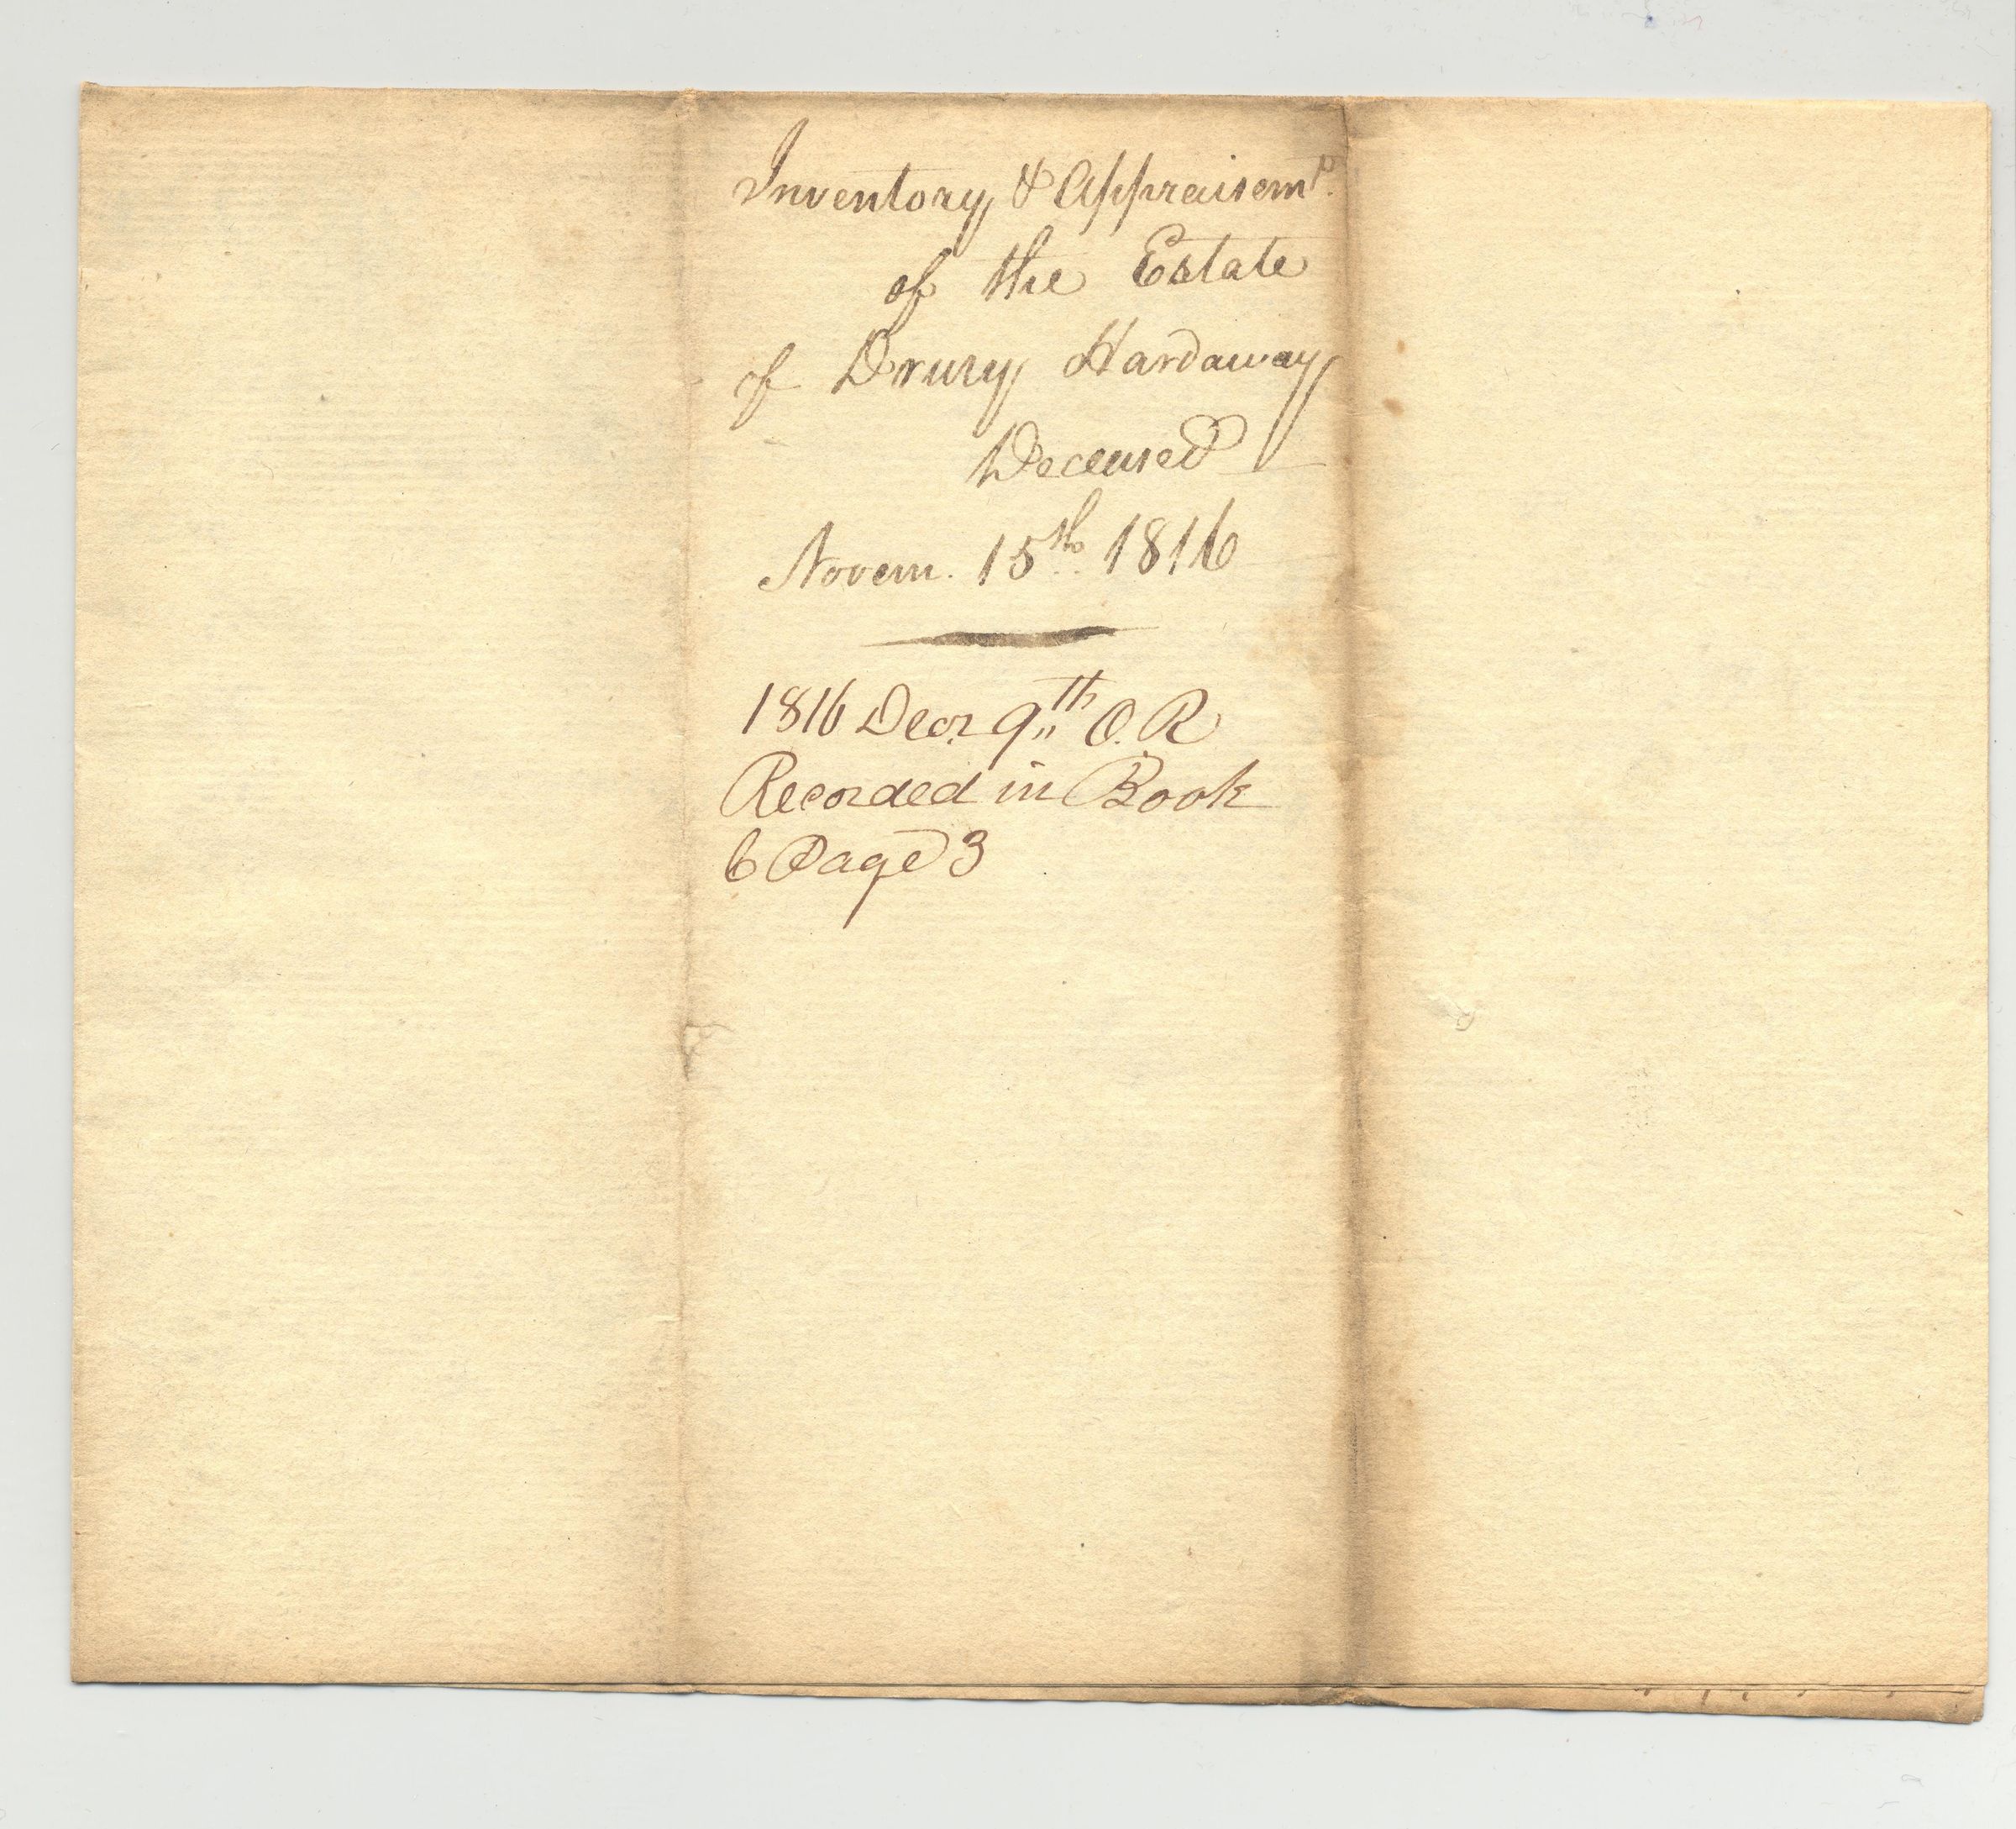 Inventory & Appraisemt.
of the Estate
of Drury Hardaway
Deceased
Novem. 15th 1816
1816 Decr 9th O. R
Recorded in Book
6 Page 3